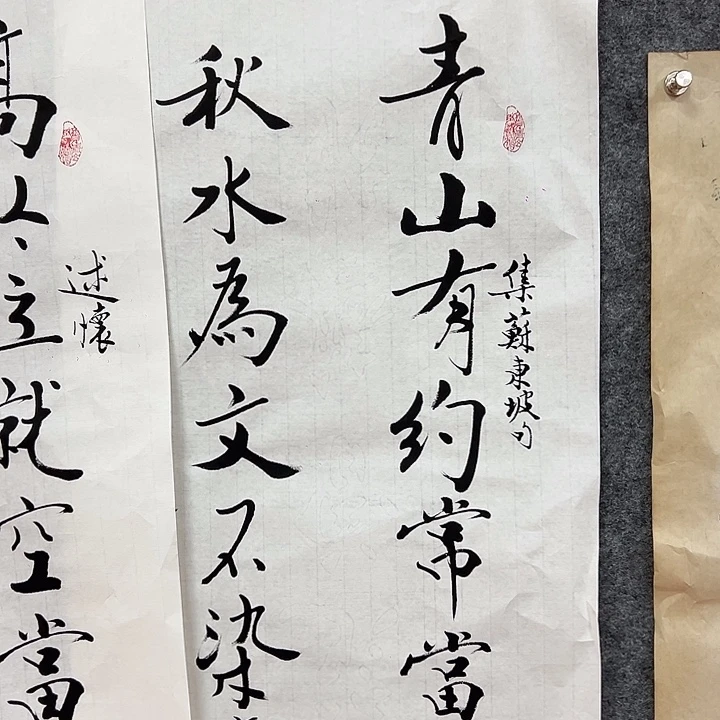 青山有約常當
集蘇東坡句
秋水為文不染
述懷
高人立就空當